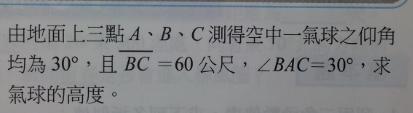 由地面上三點 A、B、C 測得空中一氣球之仰角
均為 30°，且 B̅C̅ =60 公尺，∠BAC=30°，求
氣球的高度。